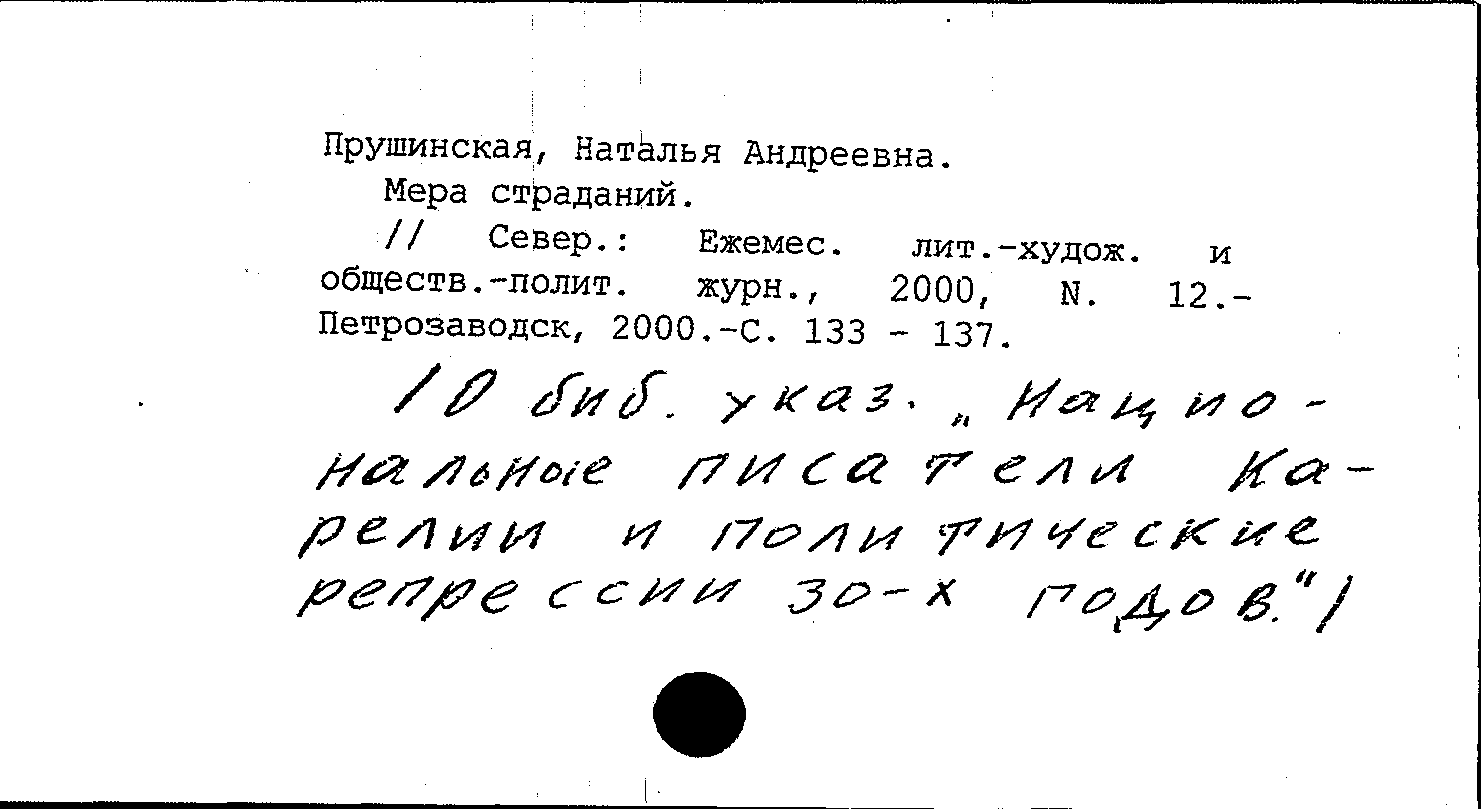 Прушинская, Наталья Андреевна.
Мера страданий.
// Север.: Ежемес. лит.-худож. и
обществ.-полит. журн., 2000, N. 12.-
Петрозаводск, 2000.-С. 133 - 137.
/О биб. указ. „Нацио-
нальные писатели Ка-
релии и политические
репрессии 30-х годов."/